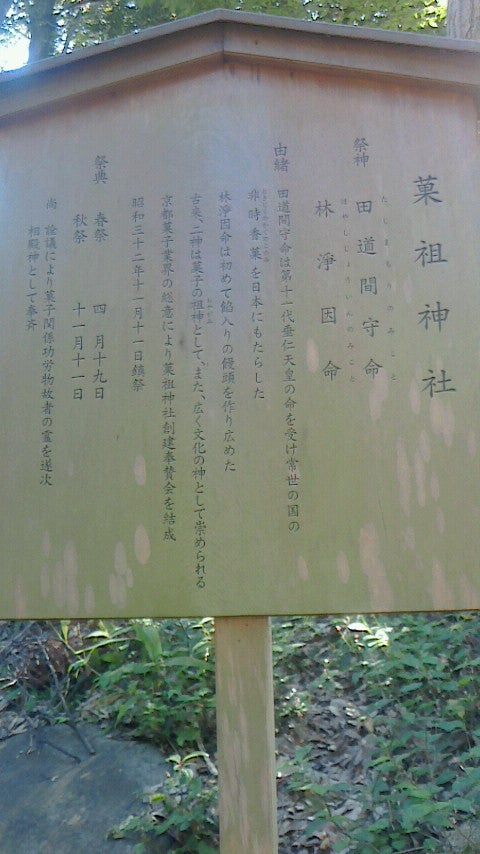 菓祖神社
祭神 田道間守命
たじまもりのみこと
林淨因命
はやしじょういんのみこと
由緒 田道間守命は第十一代垂仁天皇の命を受け常世の国の
非時香菓を日本にもたらした
林淨因命は初めて餡入りの饅頭を作り広めた
古来、二神は菓子の祖神として、また、広く文化の神として崇められる
京都菓子業界の総意により菓祖神社創建奉賛会を結成
昭和三十二年十一月十一日鎮祭
祭典 春祭 四月十九日
秋祭 十一月十一日
尚 詮議により菓子関係功労物故者の霊を逐次
相殿神として奉斉